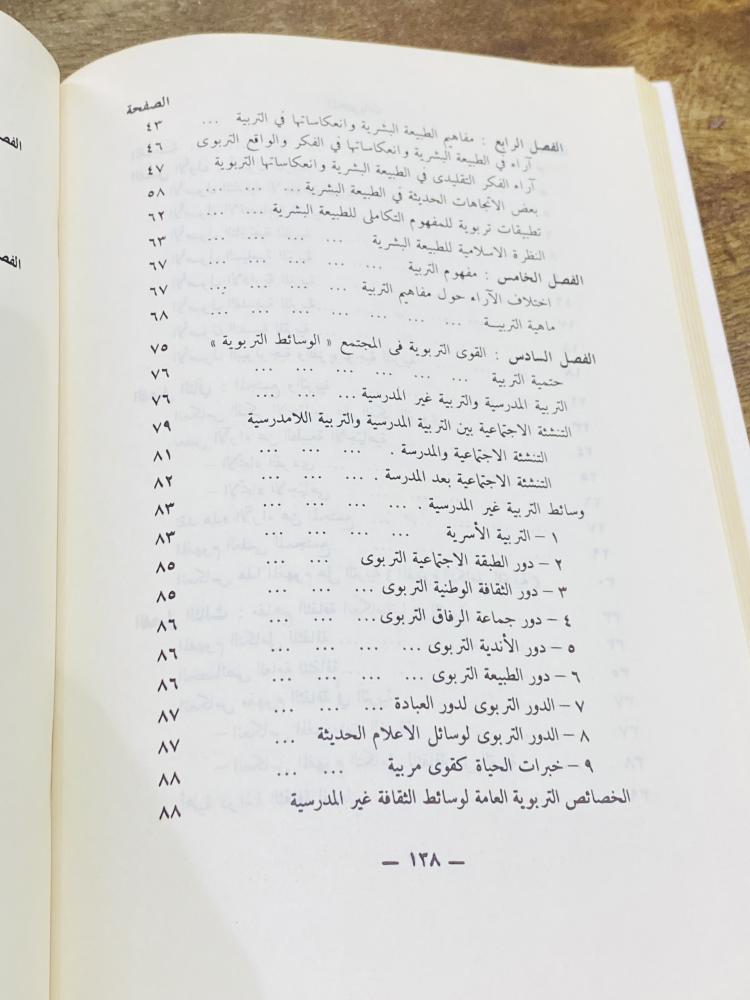 الصفحة
الفصل الرابع : مفاهيم الطبيعة البشرية وانعكاساتها في التربية ... ٤٣
آراء في الطبيعة البشرية وانعكاساتها في الفكر والواقع التربوى ٤٦
آراء الفكر التقليدى في الطبيعة البشرية وانعكاساتها التربوية ٤٧
بعض الاتجاهات الحديثة في الطبيعة البشرية ... ... ... ٥٨
تطبيقات تربوية للمفهوم التكاملى للطبيعة البشرية ... ... ٦٢
النظرة الاسلامية للطبيعة البشرية ... ... ... ... ٦٣
الفصل الخامس : مفهوم التربية ... ... ... ... ٦٧
اختلاف الآراء حول مفاهيم التربية ... ... ... ... ٦٧
ماهية التربيــة ... ... ... ... ... ... ٦٨
الفصل السادس : القوى التربوية فى المجتمع « الوسائط التربوية » ٧٥
حتمية التربية ... ... ... ... ... ... ٧٦
التربية المدرسية والتربية غير المدرسية ... ... ... ٧٦
التنشئة الاجتماعية بين التربية المدرسية والتربية اللامدرسية ٧٩
التنشئة الاجتماعية والمدرسة . ... ... ... ... ٨١
التنشئة الاجتماعية بعد المدرسة . ... ... ... ... ٨٢
وسائط التربية غير المدرسية . ... ... ... ... ٨٣
١ – التربية الأسرية ... ... ... ... ٨٣
٢ – دور الطبقة الاجتماعية التربوى ... ... ٨٥
٣ – دور الثقافة الوطنية التربوى ... ... ... ٨٥
٤ – دور جماعة الرفاق التربوى ... ... ... ٨٦
٥ – دور الأندية التربوى ... ... ... ... ٨٦
٦ – دور الطبيعة التربوى ... ... ... ... ٨٦
٧ – الدور التربوى لدور العبادة ... ... ... ٨٧
٨ – الدور التربوى لوسائل الأعلام الحديثة ... ٨٧
٩ – خبرات الحياة كقوى مربية ... ... ... ٨٨
الخصائص التربوية العامة لوسائط الثقافة غير المدرسية ٨٨
– ١٣٨ –